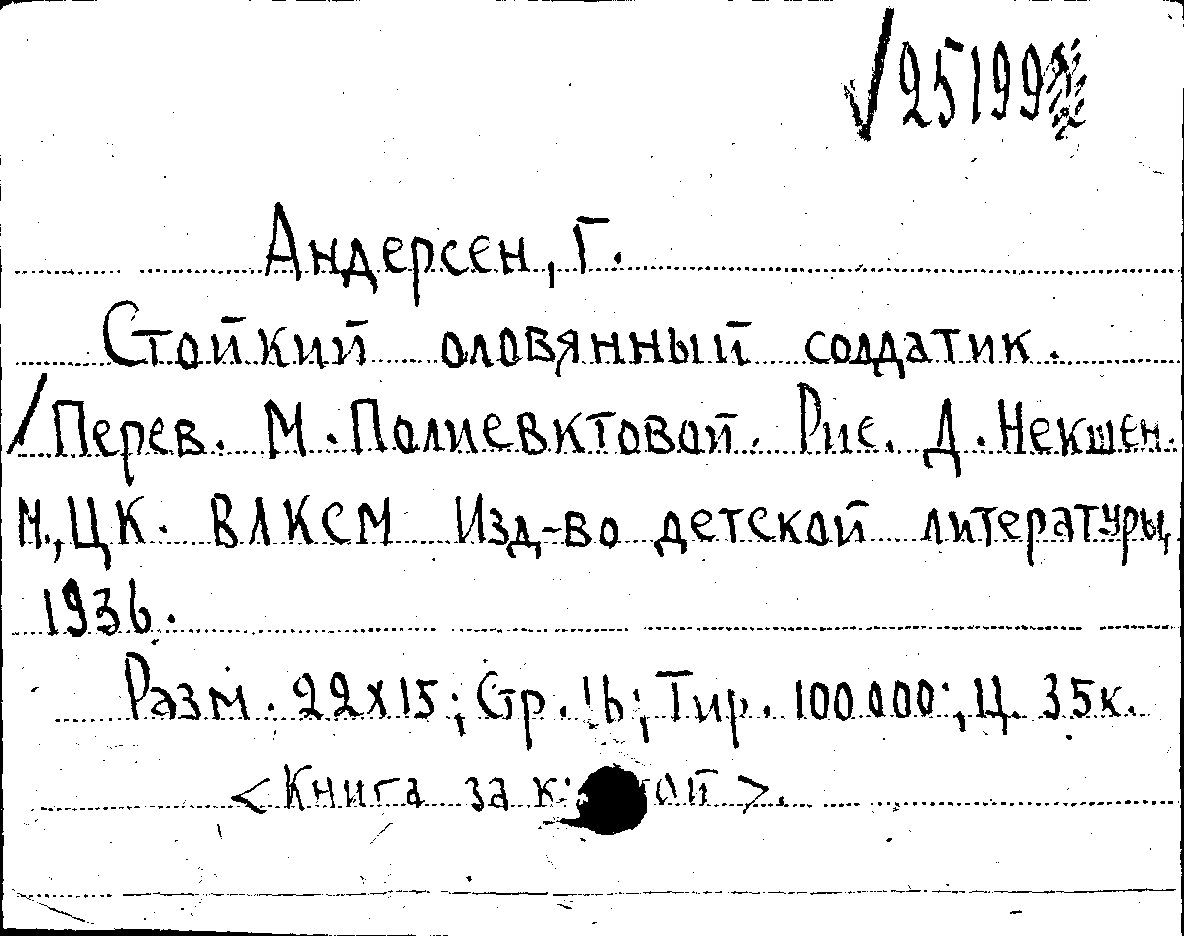 √25199
Андерсен, Г.
Стойкий оловянный солдатик.
/Перев. М. Полиевктовой. Рис. Д. Некшен.
М., ЦК. ВЛКСМ Изд-во детской литературы,
1936.
Разм. 22х15; Стр. 16; Тир. 100000; Ц. 35к.
<Книга за